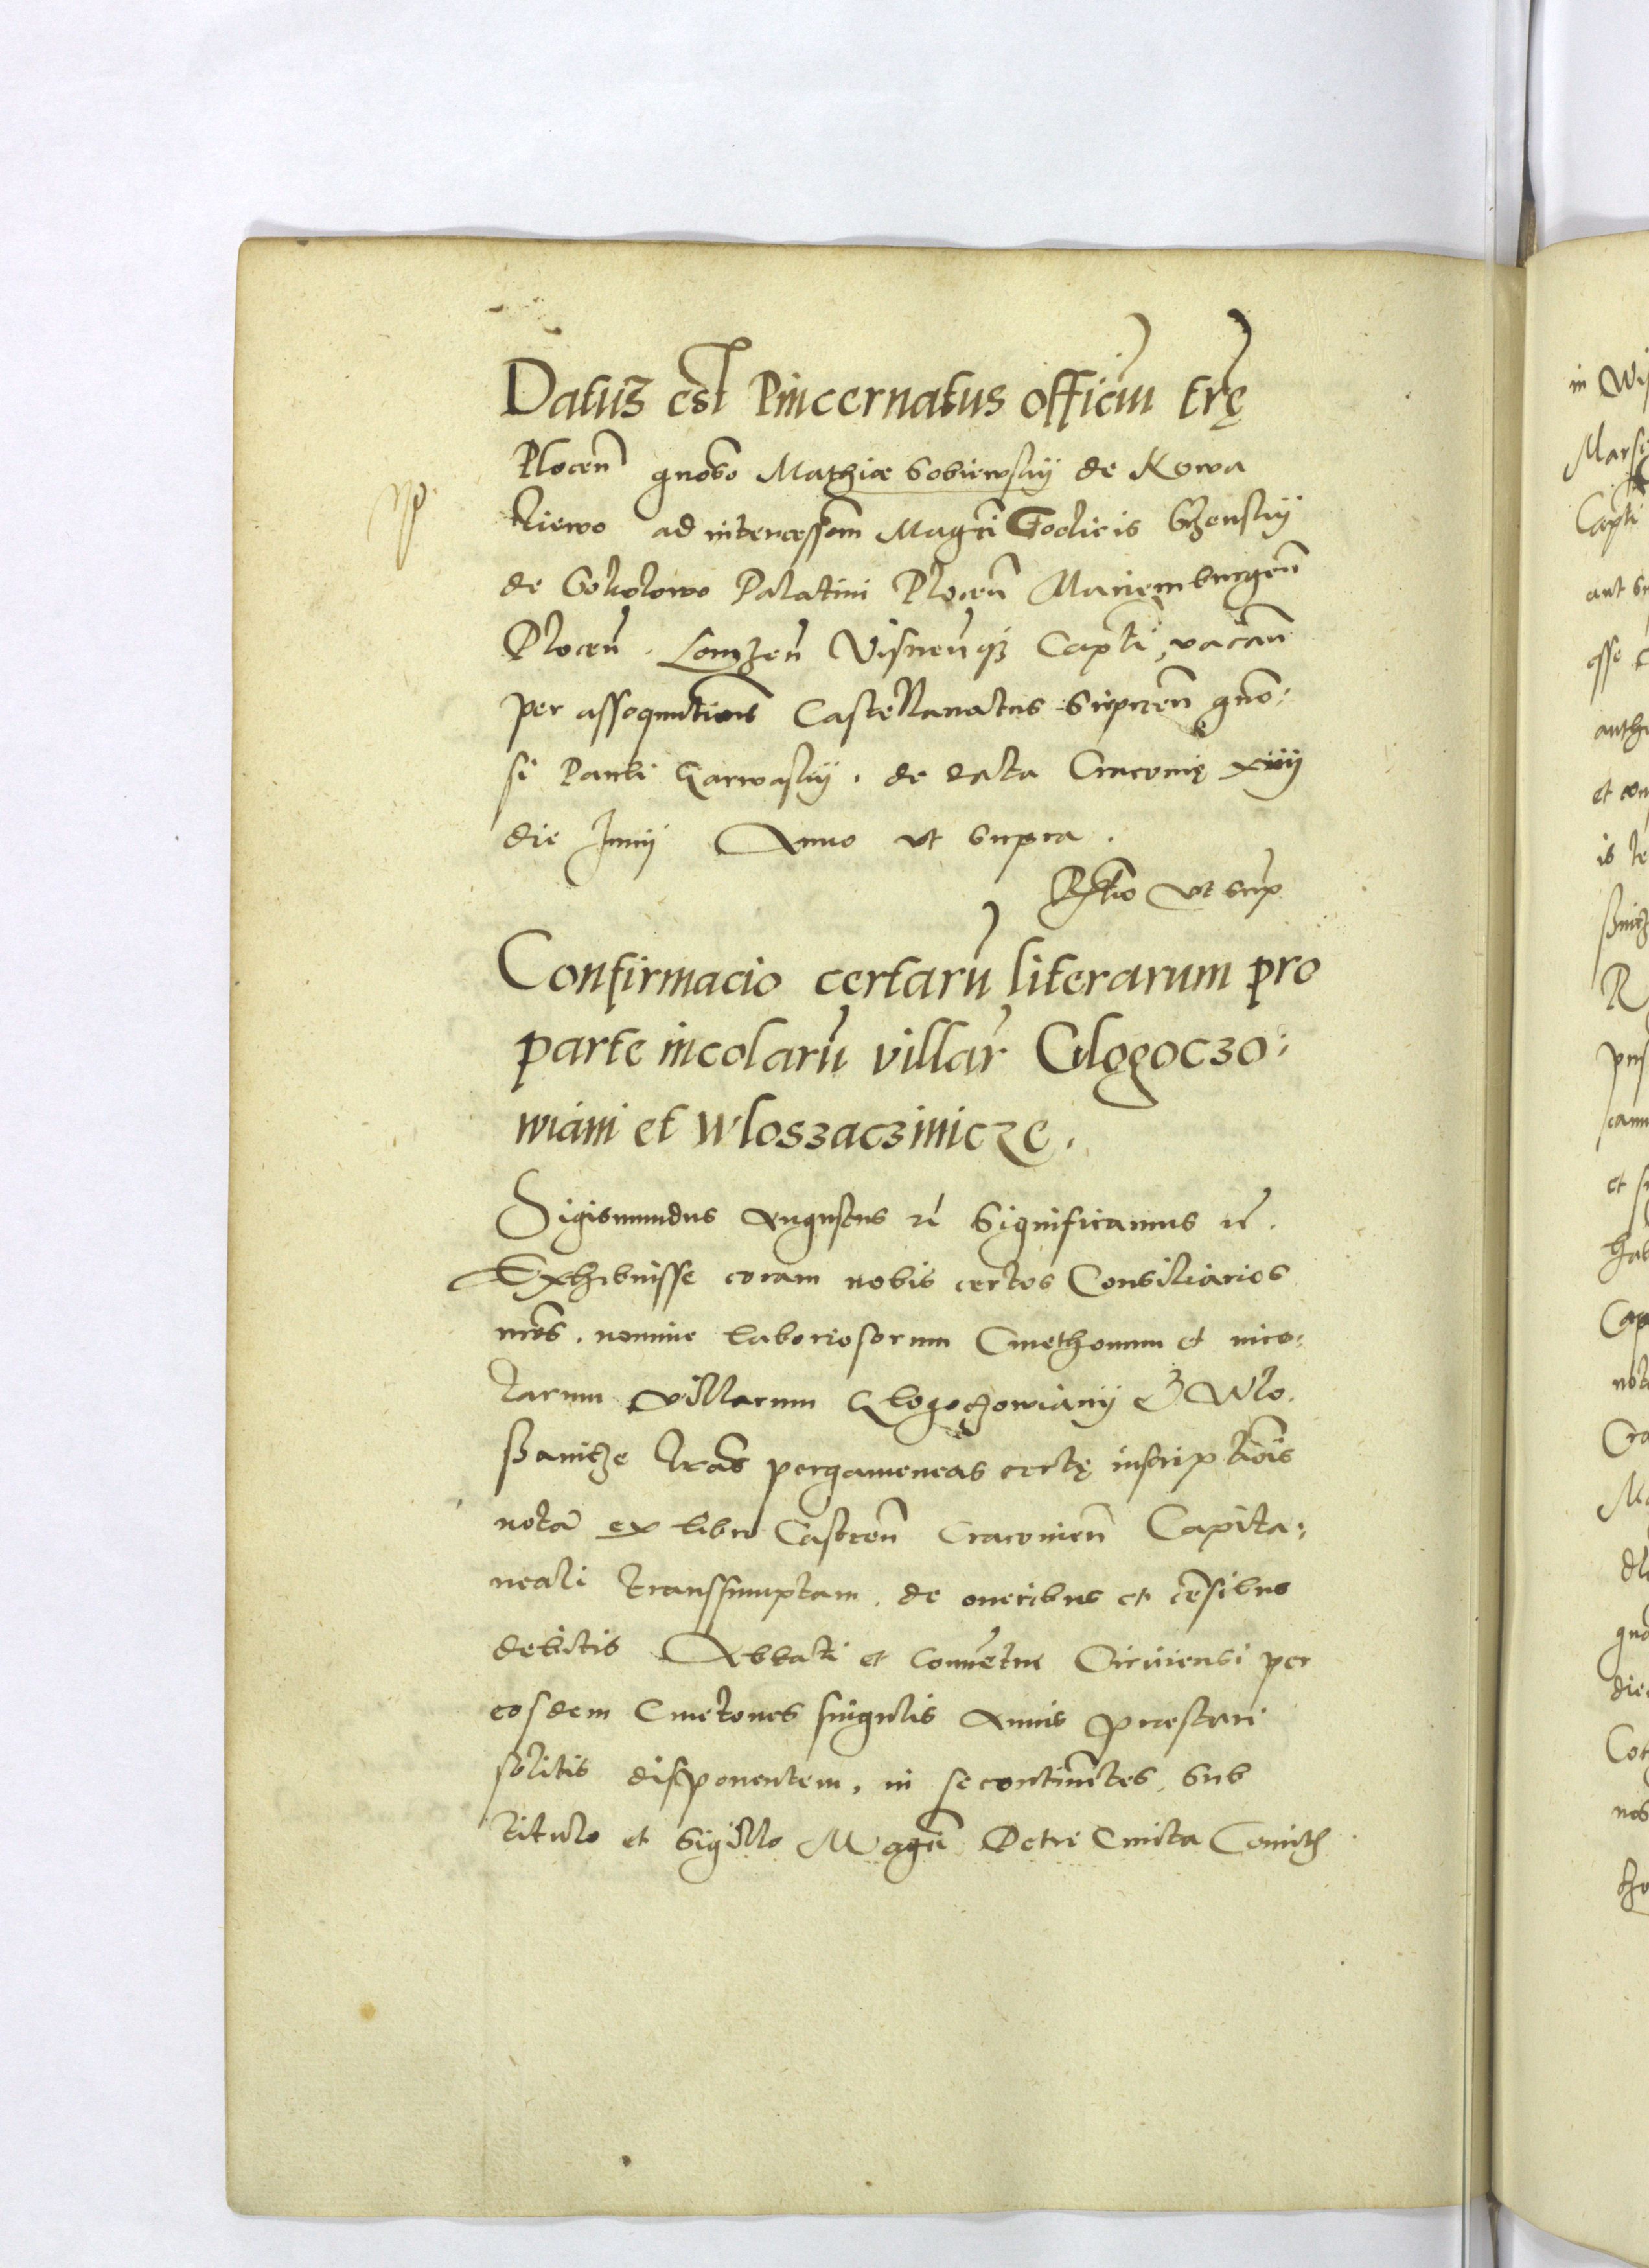 Datus est Pincernatus officiu trę
Plocen gnoso Mathiæ Sobiewsky de Kowa
lewo ad intercessom Magci Goclicis
de Sokolowo Palatini Plocen Mariemburgen
Plocen. Lomzen Visnenq3 Capti, vacan
per assequutions Castellanatus Sieprcen gno:
si Pauli Garwasky. de data Cracovię xiiii
die Junij Anno ut supra.
Rlatio ut sup
Confirmacio certaru literarum pro
parte incolaru villar Glogoczo:
wiani et Wloszaczinicze.
Sigismundus Augustus rc Significamus rc.
Exhibuisse coram nobis certos Consiliarios
nros. nomine laboriosorum Cmethonum et inco:
larum villarum Glogoczowiany & Wlo.
ßanicze lras pergameneas certę inscriptiois
nota ex libro Castren Cracovien Capita:
neali transsumptam. de oneribus et cesibus
debitis Abbati et Conuetui Tinciensi per
eosdem Cmetones singulis Annis præstari
solitis disponentem. in se continetes, sub
titulo et Sigillo Magci Petri Cmita Comit
in
Capti
esse
et